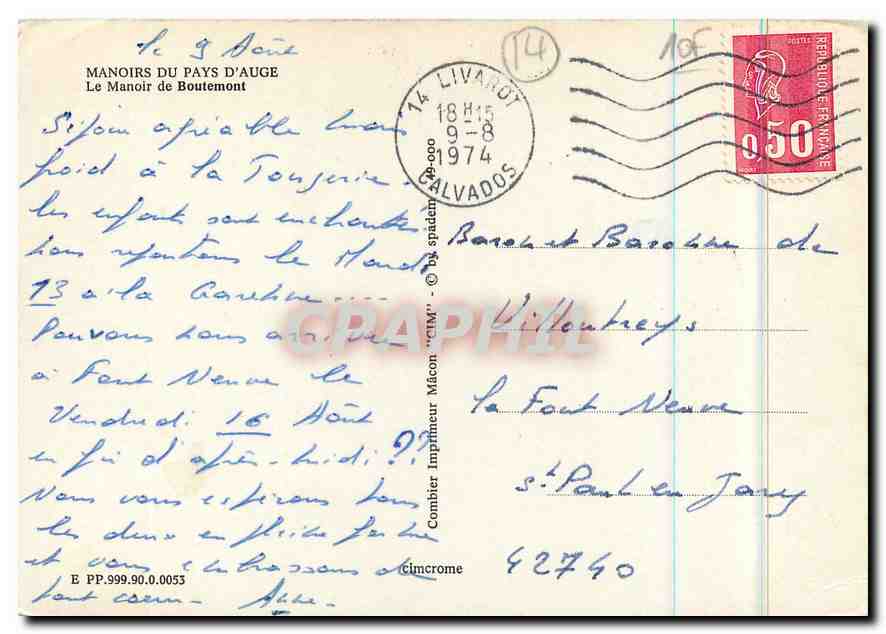 le 9 Août
MANOIRS DU PAYS D'AUGE
Le Manoir de Boutemont
Séjour agréable mais
froid à la Tougerie.
les enfants sont enchantés.
nous repartons le Mardi
13 à la Garenne ....
Pouvons nous arriver
à Font Neuve le
Vendredi 16 Août
en fin d'après-midi ??
Nous vous espérons tous
les deux en pleine forme
et vous embrassons de
tout coeur - Anne.
E PP.999.90.0.0053
Combier Imprimeur Mâcon "CIM" - © by spadem 49-000
cimcrome
14
10F
14 LIVAROT
18H15
9-8
1974
CALVADOS
POSTES
REPUBLIQUE FRANÇAISE
0,50
Baron et Baronne de
Villoutreys
la Font Neuve
St Paul en Jarez
42740
CPAPHIL